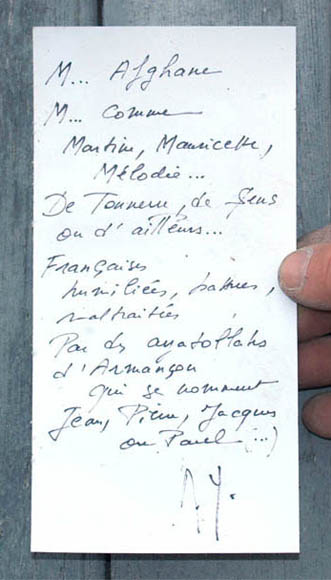 M... Afghane
M... comme
Martine, Mauricette,
Mélodie...
De Tonnerre, de Sens
ou d'ailleurs...
Françaises
humiliées, battues,
maltraitées
Par des ayatollahs
d'Armançon
qui se nomment
Jean, Pierre, Jacques
ou Paul (...)